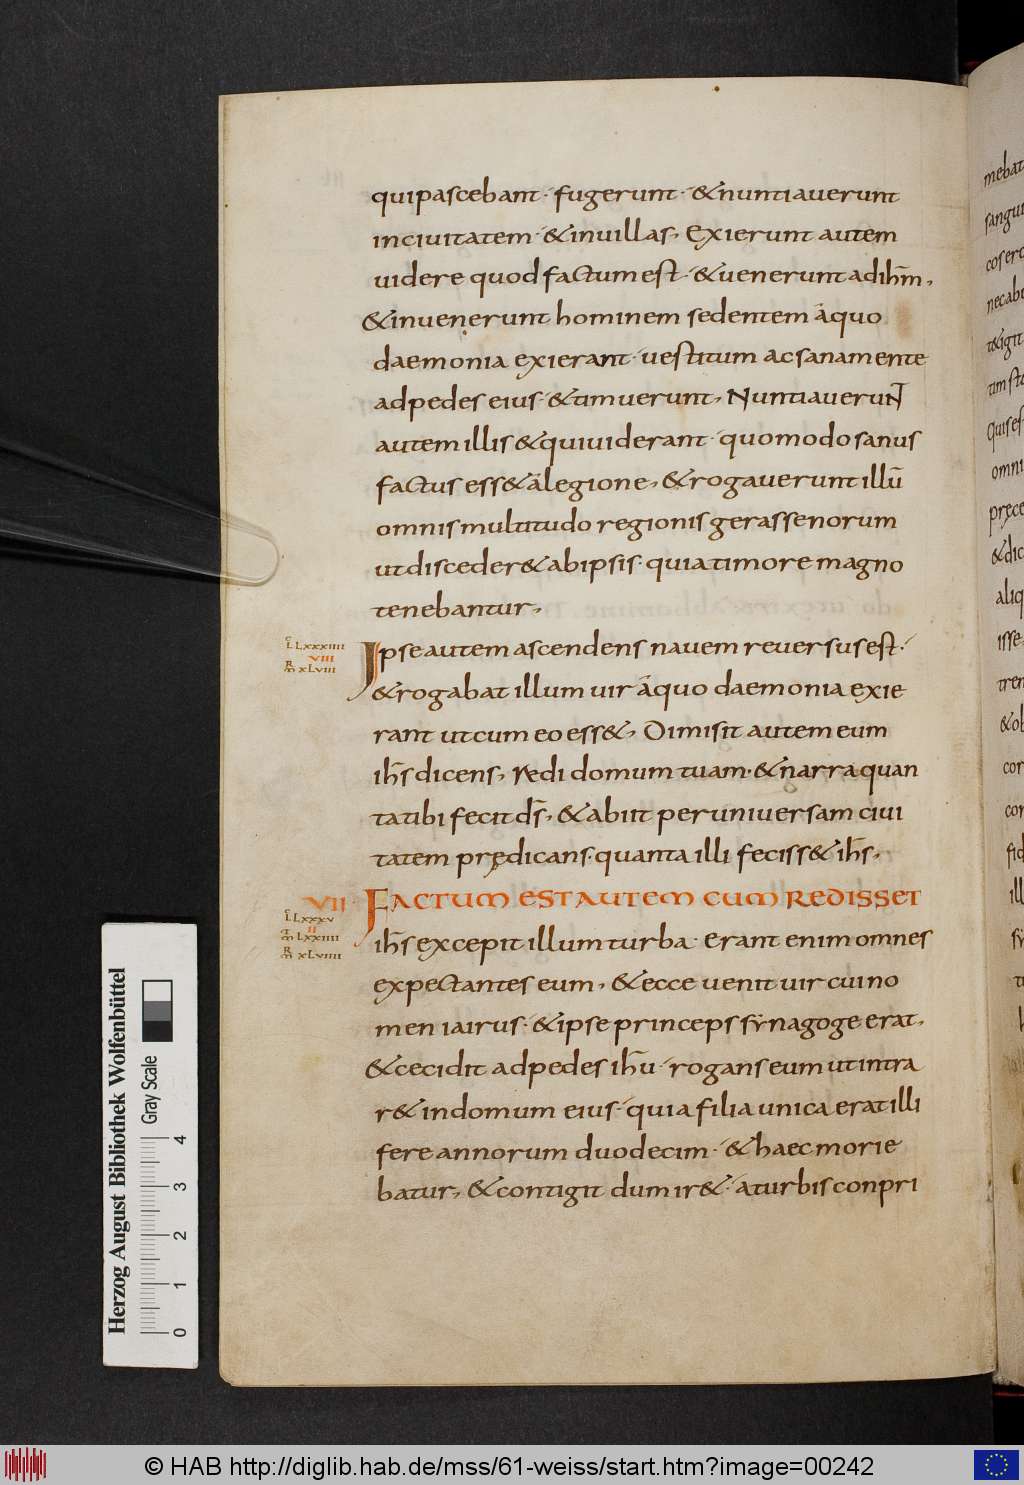 quipascebant· fugerunt· &nuntiauerunt
inciuitatem· &inuillas, Exierunt autem
uidere quod factumest· &uenerunt adih̅m,
&inuenerunt hominem sedentem áquo
daemonia exierant· uestitum acsanamente
adpedes eius· &timuerunt, Nuntiauerunt
autem illis &quiuiderant· quomodo sanus
factus ess& álegione, &rogauerunt illū
omnis multitudo regionis gerassenorum
utdisceder& abipsis· quia timore magno
tenebantur,
L LxxxIIII
VIII
xLVIII
Ipse autem ascendens nauem reuersusest·
&rogabat illum uir áquo daemonia exie
rant utcum eo ess&, Dimisit autem eum
ih̅s dicens, Redi domum tuam· &narra quan
tatibi fecit d̅s, &abiit peruniuersam ciui
tatem prędicans· quanta illi feciss& ih̅s,
VII FACTUM EST AUTEM CUM REDISSET
L Lxxxv
II
LxxIIII
xLVIIII
ih̅s excepit illum turba· erant enim omnes
expectantes eum, &ecce uenit uir cui no
men iairus· &ipse princeps synagoge erat,
&cecidit adpedes ih̅u· rogans eum utintra
r& indomum eius· quia filia unica erat illi
fere annorum duodecim· &haec morie
batur, &contigit dum ir& aturbis conpri
mebat
sangui
necabi
t&igit
omni
&dic
aliq
isse
tren
&ob
cor
con
fid
ill
Herzog August Bibliothek Wolfenbüttel
Gray Scale
0 1 2 3 4
© HAB http://diglib.hab.de/mss/61-weiss/start.htm?image=00242